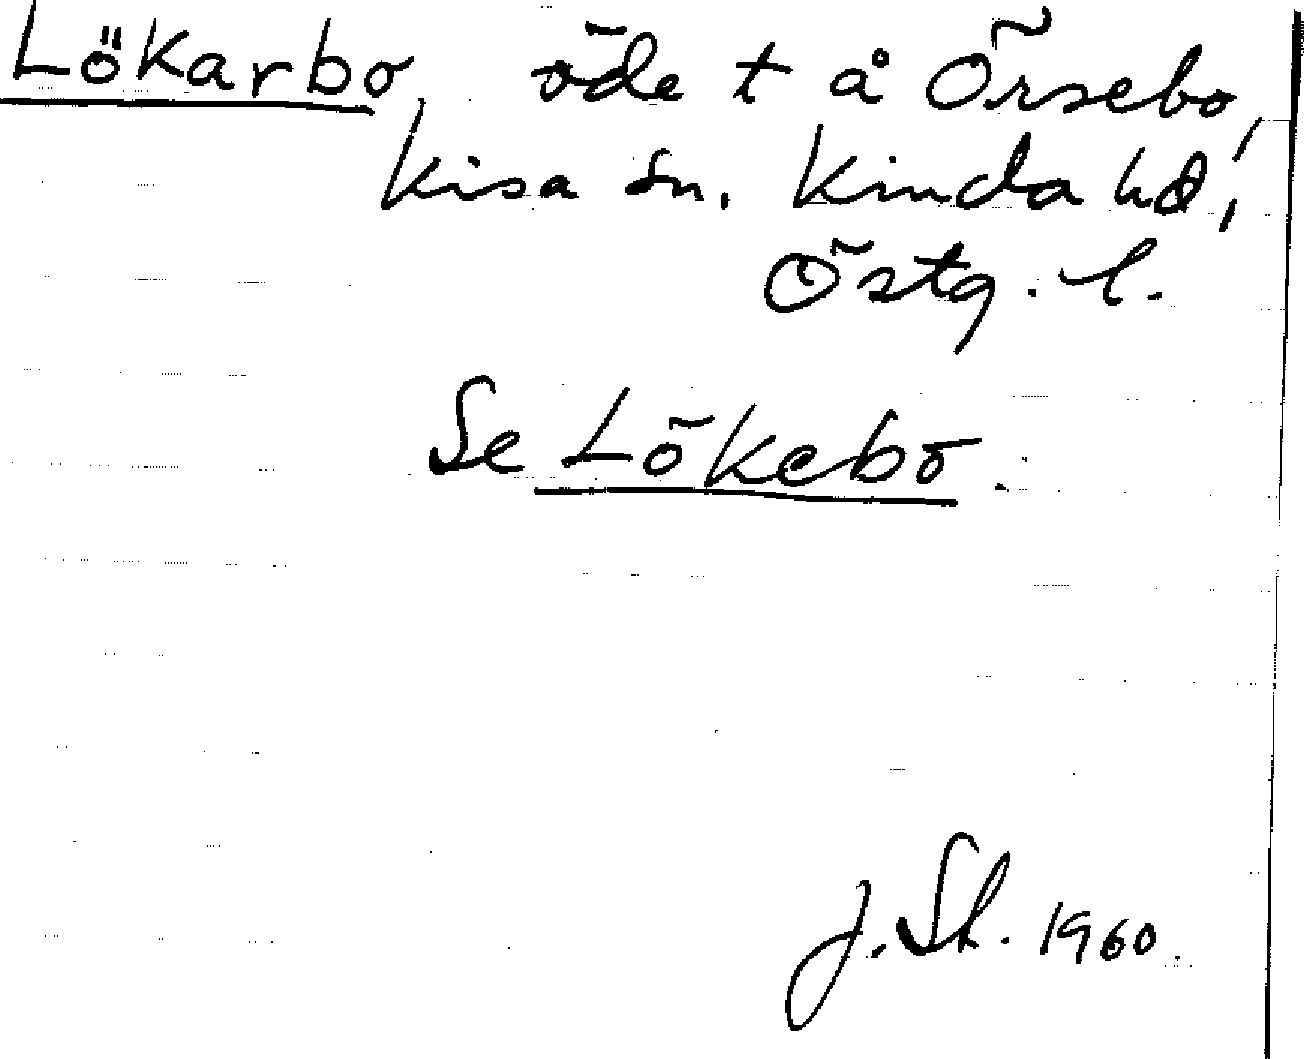 Lökarbo, öde t å Örsebo,
Kisa sn, Kinda hd,
Östg. l.
Se Lökebo.
J. Sk. 1960.